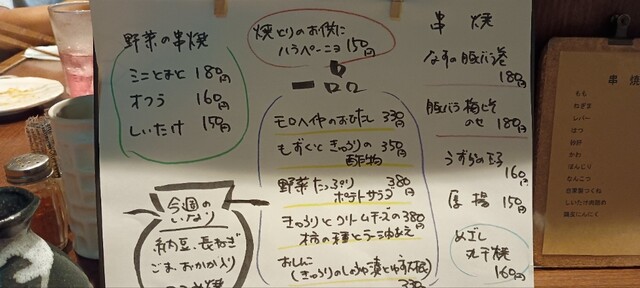 野菜の串焼
ミニとまと 180円
オクラ 160円
しいたけ 150円
今週の
いなり
納豆、長ねぎ
ごま、おかか入り
焼とりのお供に
ハラペーニョ 150円
一口
モロヘイヤのおひたし 330円
もずくときゅうりの 350円
酢の物
野菜たっぷり 380円
ポテトサラダ
きゅうりとクリームチーズの 380円
柿の種とラー油あえ
おしんこ
(きゅうりのしょうゆ漬とゆず大根)
330
串焼
なすの豚バラ巻
180円
豚バラ梅じそ
のせ 180円
うずらの玉子
160円
厚揚 150円
めざし
丸干焼
160円
串焼
もも
ねぎま
レバー
はつ
砂肝
かわ
ぼんじり
なんこつ
自家製つくね
しいたけ肉詰め